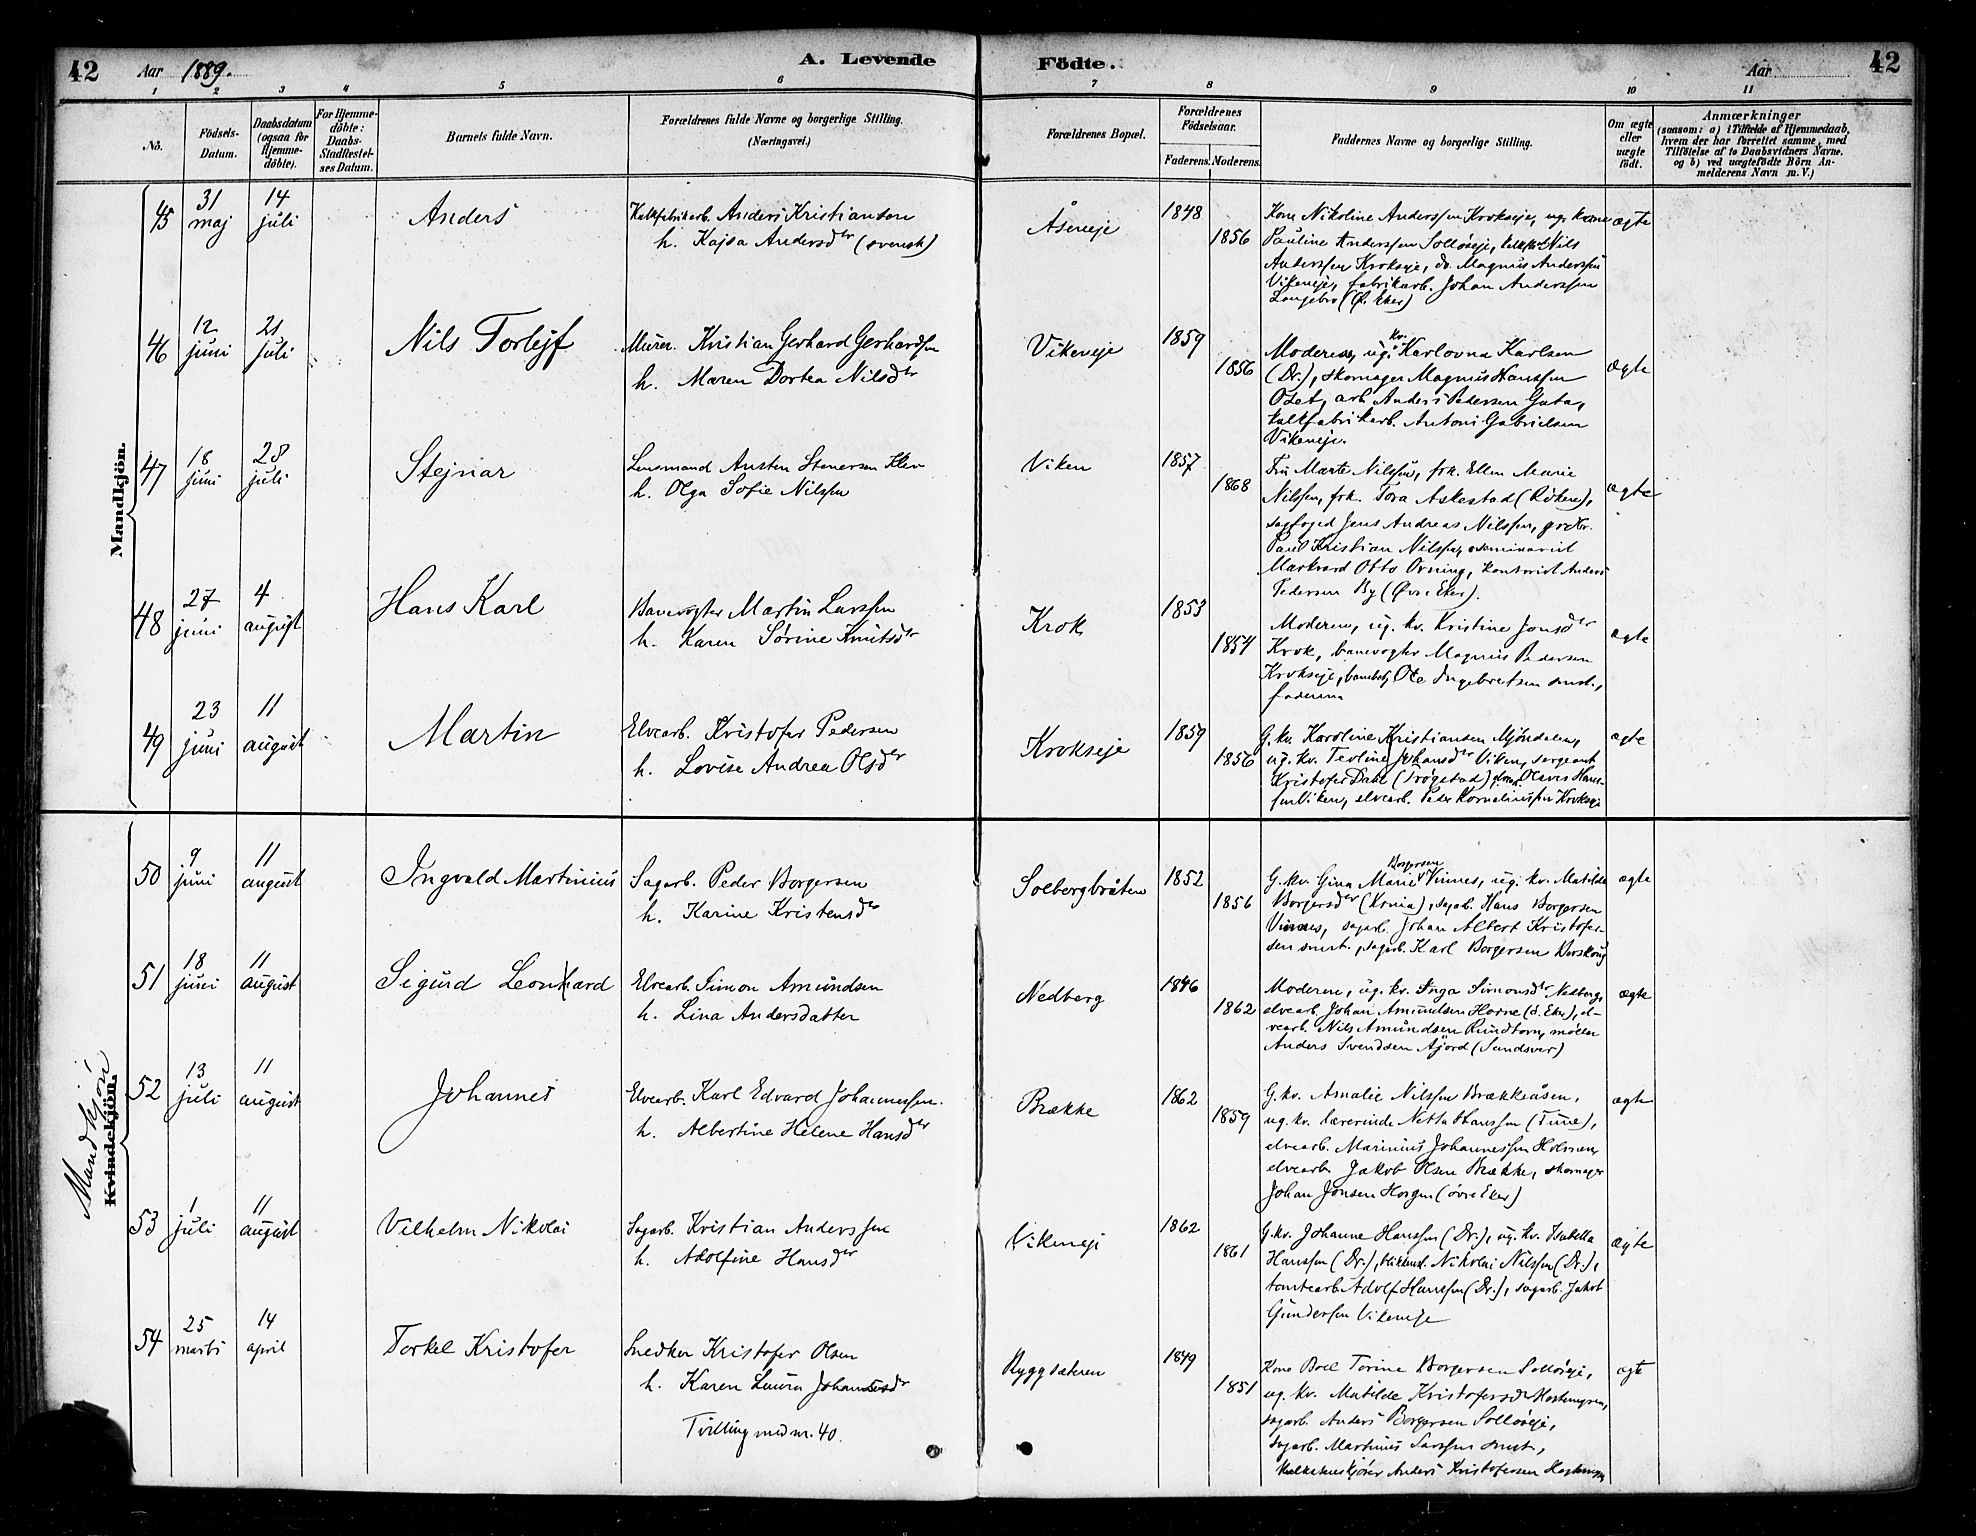 42 Aar 1889. A. Levende Födte. Aar 42
1 2 3 4 5 6 7 8 9 10 11
No.
Födsels-Datum.
Daabsdatum (ogsaa for Hjemme-döbte).
For Hjemme-döbte: Daabs-Stadfæstel-ses Datum.
Barnets fulde Navn.
Forældrenes fulde Navne og borgerlige Stilling.
(Næringsvei.)
Forældrenes Bopæl.
Forældrenes Födselsaar.
Faderens. Moderens.
Faddernes Navne og borgerlige Stilling.
Om ægte eller uægte födt.
Anmærkninger
(saasom: a) i Tilfælde af Hjemmedaab,
hvem der har forrettet samme, med
Tilföielse af to Daabsvidners Navne.
og b) ved uægtefödte Börn An-
melderens Navn m. V.)
Mandkjön.
45 31 maj 14 juli Anders
Kalkfabrikarb. Anders Kristianson
h. Kajsa Andersdtr (svensk)
Åseneje 1848 1856
Kone Nikoline Anderssen Krokseje, ug. kone
Pauline Anderssen Solløseje, Nils
Anderssen Krokseje, do. Magnus Anderssen
Vikeneje, fabrikarb. Johan Anderssen
Langebro (Ø. Eker)
ægte
46 12 juni 21 juli Nils Torlejf
Murer Kristian Gerhard Gerhardsen
h. Maren Dortea Nilsdtr
Vikeneje 1859 1856
Moderen, ug. kv. Karlovna Karlsen
(Dr.), skomager Magnus Hanssen
Oset, arb. Anders Pedersen Gata,
kalkfabrikarb. Antoni Gabrielsen
Vikeneje.
ægte
47 18 juni 28 juli Stejnar
Lensmand Austen Stenersen Klev
h. Olga Sofie Nilssen
Viken 1857 1868
Fru Marte Nilssen, frk. Ellen Marie
Nilssen, frk. Tora Askestad (Röken),
sagfoged Jens Andreas Nilssen, grdbr.
Paul Kristian Nilssen, seminarist
Markvard Otto Orning, kontorist Anders
Pedersen By (Øvre Eker).
ægte
48 27 juni 4 august Hans Karl
Banevogter Martin Larssen
h. Karen Sørine Knutsdtr
Krok 1853 1854
Moderen, ug. kv. Kristine Jonsdtr
Krok, banevogter Magnus Pedersen
Krokseje, Ole Ingebretsen smst.,
faderen
ægte
49 23 juni 11 august Martin
Elvearb. Kristofer Pedersen
h. Lovise Andrea Olsdtr
Krokseje 1859 1856
G. kv. Karoline Kristiansen Mjøndalen,
ug. kv. Teoline Johansdtr Viken, sergeant
Kristofer Dahl (Trøgstad), Olaves Hans-
sen Viken, elvearb. Peder Korneliussen Krokseje
ægte
Mandkjön
Kvindekjön.
50 9 juni 11 august Ingvald Martinius
Sagarb. Peder Borgersen
h. Karine Kristensdtr
Solbergbråten 1852 1856
G. kv. Gina Marie Borgersen Vinnes, ug. kv. Matilde
Borgersdtr (Krnia), sagarb. Hans Borgersen
Vinnes, sagarb. Johan Albert Kristofer-
sen smst., sagarb. Karl Borgersen Borskoug
ægte
51 18 juni 11 august Sigurd Leonhard
Elvearb. Simon Amundsen
h. Lina Andersdatter
Nedberg 1846 1862
Moderen, ug. kv. Inga Simonsdtr Nedberg,
elvearb. Johan Amundsen Horne (Ø. Eker), el-
vearb. Nils Amundsen Rundtom, møller
Anders Svendsen Ajord (Sandsver)
ægte
52 13 juli 11 august Johannes
Elvearb. Karl Edvard Johannessen
h. Albertine Helene Hansdtr
Brække 1862 1859
G. kv. Amalie Nilssen Brækkeåsen,
ug. kv. lærerinde Netta Hanssen (Tune),
elvearb. Marinius Johannessen Holmen,
elvearb. Jakob Olsen Brække, skomager
Johan Jonsen Horgen (øvre Eker)
ægte
53 1 juli 11 august Vilhelm Nikolai
Sagarb. Kristian Anderssen
h. Adolfine Hansdtr
Vikeneje 1862 1861
G. kv. Johanne Hanssen (Dr.), ug. kv. Isabella
Hanssen (Dr.), blikkensl. Nikolai Nilssen (Dr.),
tomtearb. Adolf Hanssen (Dr.), sagarb. Jakob
Gundersen Vikeneje
ægte
54 25 marts 14 april Torkel Kristofer
Snedker Kristofer Olsen
h. Karen Laura Johannesdtr
Tvilling med nr. 40.
Ryggsæteren 1849 1851
Kone Boel Torine Borgersen Solløseje,
ug. kv. Matilde Kristofersdtr Hagtomyren,
sagarb. Anders Borgersen Solløseje,
sagarb. Martinus Larssen smst.,
Anders Kristofersen
ægte